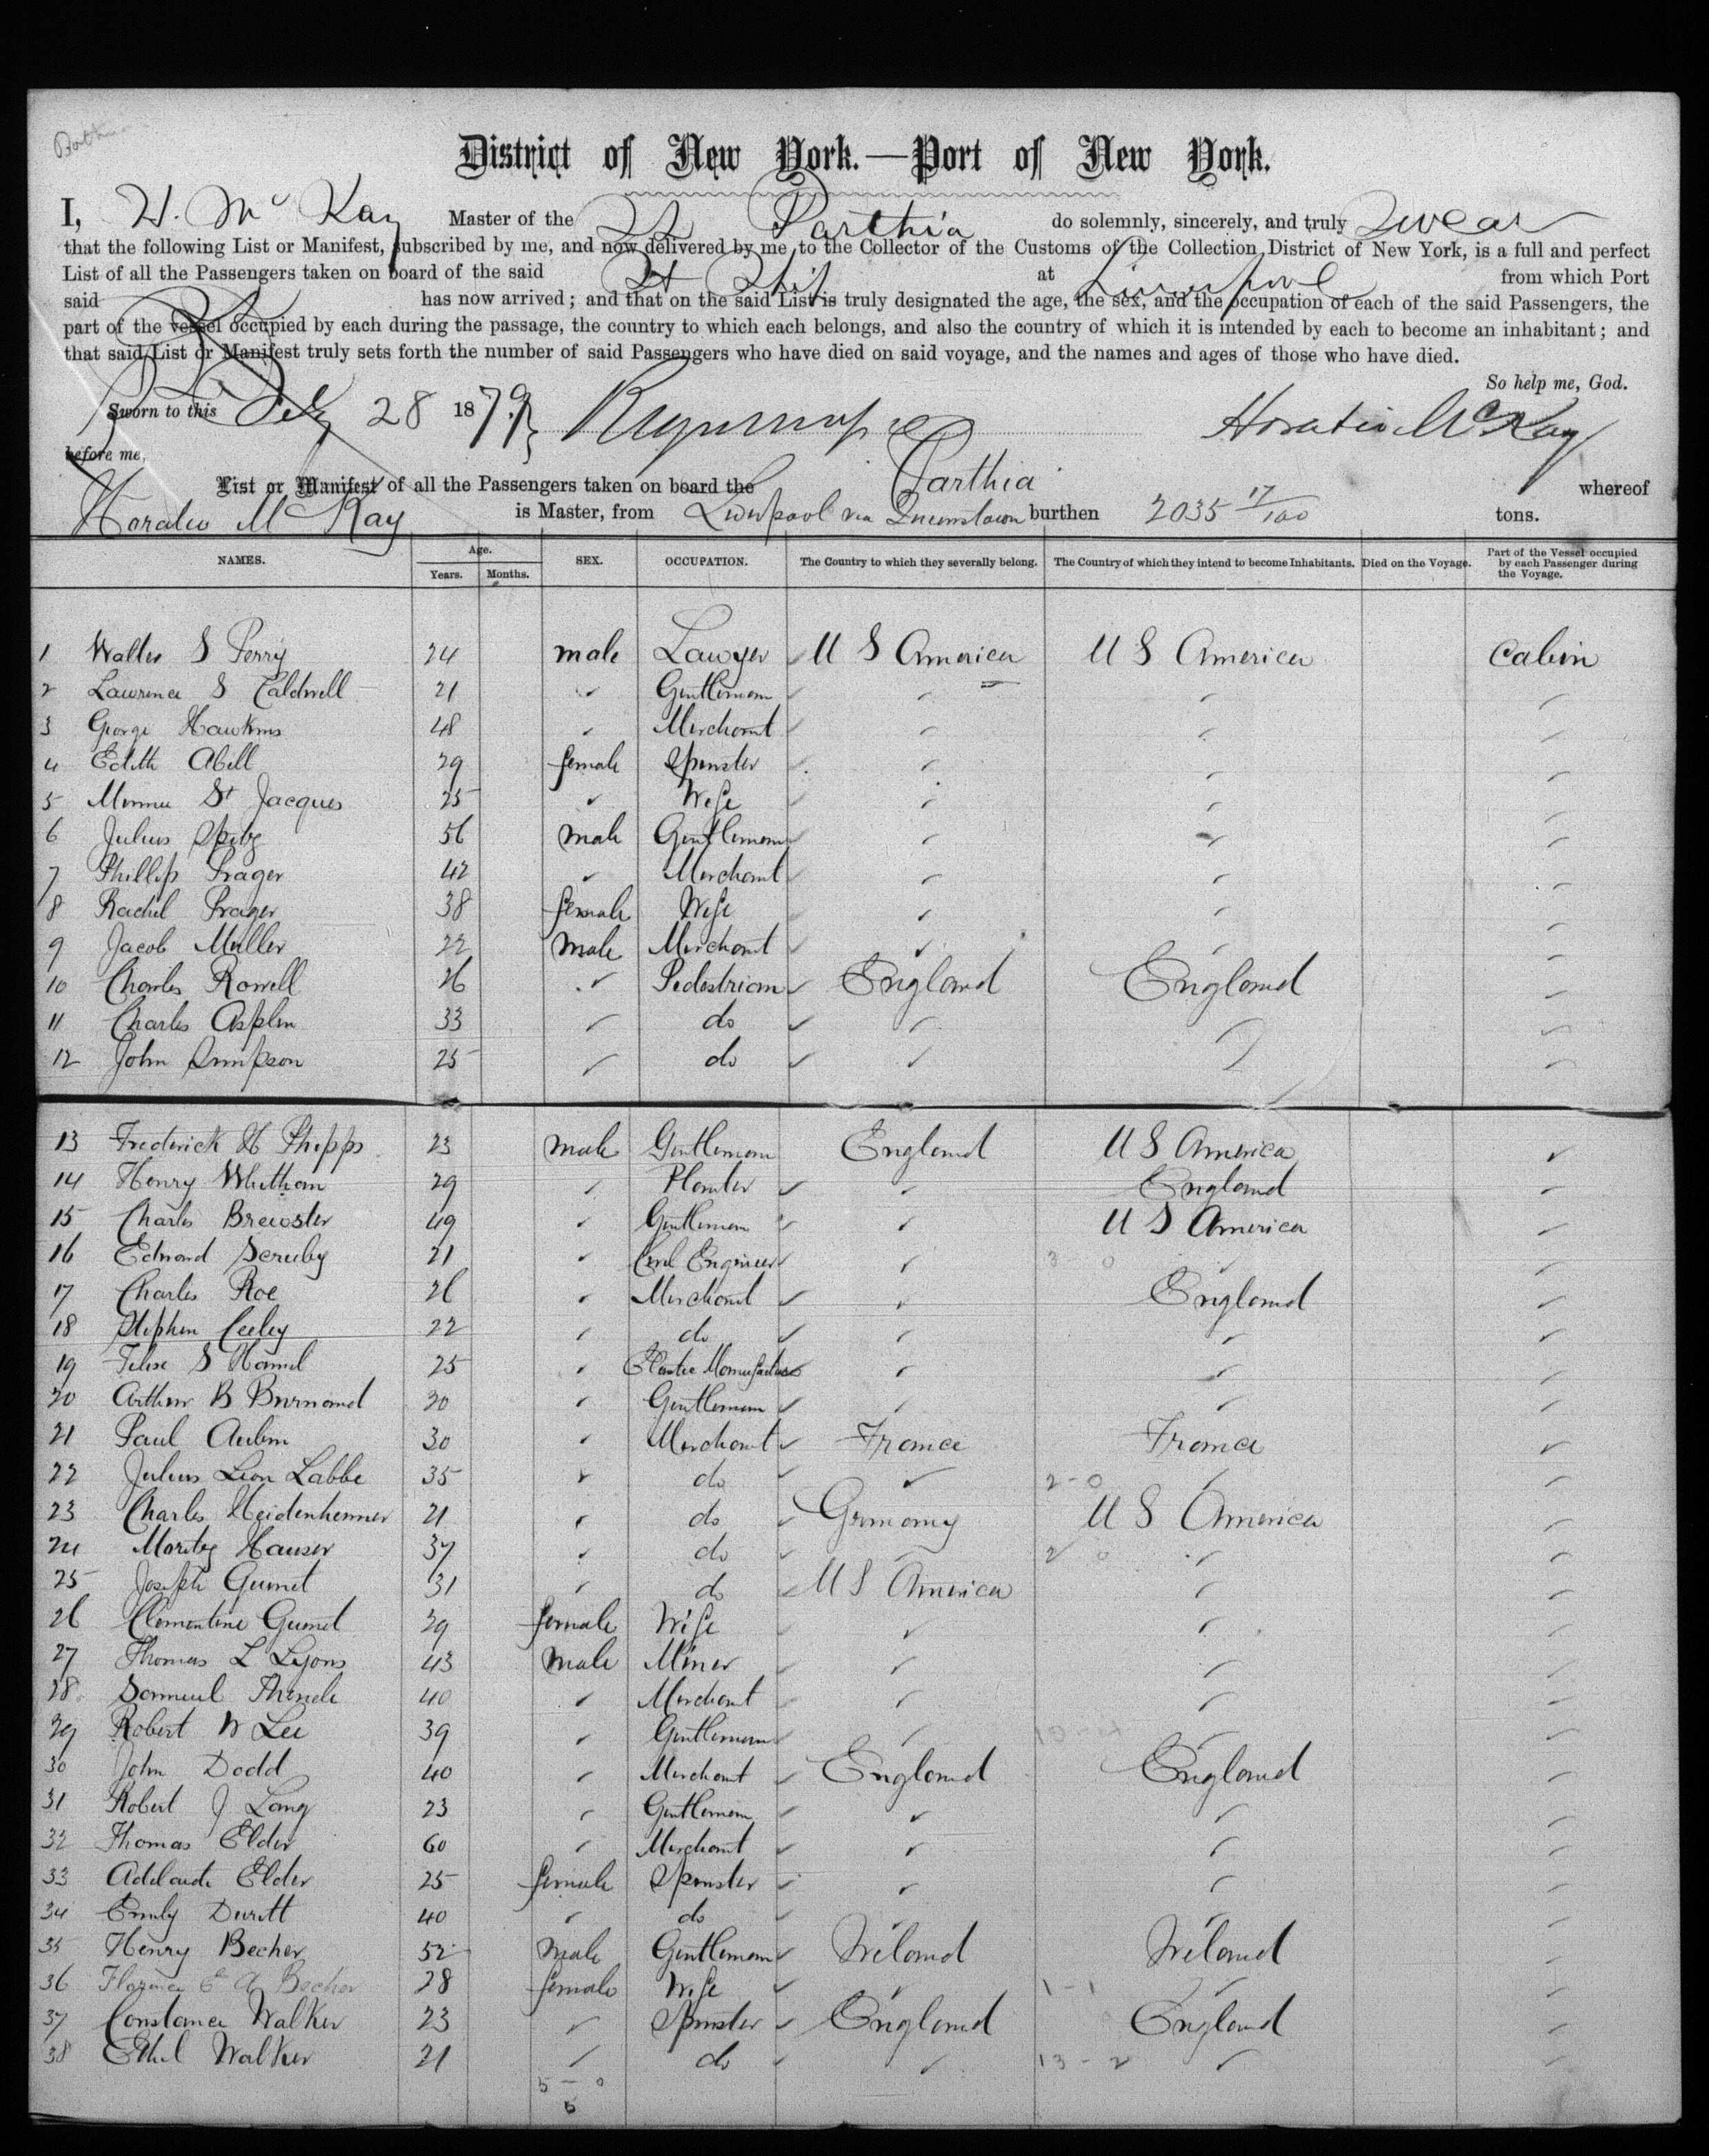 District of New York.—Port of New York.
I, H. McKay Master of the SS Parthia do solemnly, sincerely, and truly Swear
that the following List or Manifest, subscribed by me, and now delivered by me to the Collector of the Customs of the Collection District of New York, is a full and perfect
List of all the Passengers taken on board of the said St Ship at Liverpool from which Port
said has now arrived; and that on the said List is truly designated the age, the sex, and the occupation of each of the said Passengers, the
part of the vessel occupied by each during the passage, the country to which each belongs, and also the country of which it is intended by each to become an inhabitant; and
that said List or Manifest truly sets forth the number of said Passengers who have died on said voyage, and the names and ages of those who have died.
So help me, God.
Sworn to this Feby 28 1879 Horatio McKay
before me,
List or Manifest of all the Passengers taken on board the Parthia whereof
Horatio McKay is Master, from Liverpool via Queenstown burthen 2035 17/100 tons.
NAMES. Age. Years. Months. SEX. OCCUPATION. The Country to which they severally belong. The Country of which they intend to become Inhabitants. Died on the Voyage. Part of the Vessel occupied by each Passenger during the Voyage.
1 Walter S Perry 24 male Lawyer U S America U S America Cabin
2 Lawrence S Caldwell 21 Gentleman
3 George Hawkins 48 Merchant
4 Edith Abell 29 female Spinster
5 Minnie St Jacques 25 Wife
6 Julius Spitz 56 male Gentleman
7 Phillip Prager 42 Merchant
8 Rachel Prager 38 female Wife
9 Jacob Muller 22 male Merchant
10 Charles Rowell 26 Pedestrian England England
11 Charles Asplin 33 do
12 John Simpson 25 do
13 Frederick H Phipps 23 male Gentleman England U S America
14 Henry Whitham 29 Planter England
15 Charles Brewster 49 Gentleman U S America
16 Edmond Scruby 21 Civil Engineer 3 0
17 Charles Roe 26 Merchant England
18 Stephen Ceeley 22 do
19 S Hamel 25 Elastic Manufacturer
20 Arthur B Burnand 30 Gentleman
21 Paul Aubin 30 Merchant France France
22 Julius Leon Labbe 35 do 2-0
23 Charles Heidenheimer 21 do Germany U S America
24 Moritz Hauser 37 do 2 0
25 Joseph Guinet 31 do U S America
26 Clementine Guinet 29 female Wife
27 Thomas L Lyons 43 male Miner
28 Samuel 40 Merchant
29 Robert W Lee 39 Gentleman
30 John Dodd 40 Merchant England England
31 Robert J Lang 23 Gentleman
32 Thomas Elder 60 Merchant
33 Adelaide Elder 25 female Spinster
34 Emily Duritt 40 do
35 Henry Becher 52 male Gentleman Ireland Ireland
36 Florence E A Becher 28 female Wife 1-1
37 Constance Walker 23 Spinster England England
38 Ethel Walker 21 do 13-2
5-0
6